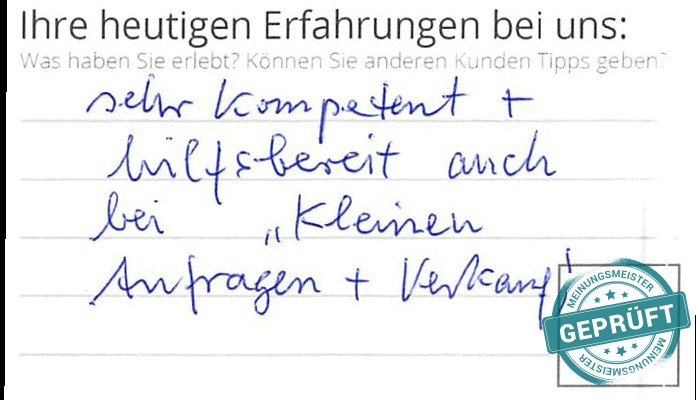 Ihre heutigen Erfahrungen bei uns:
Was haben Sie erlebt? Können Sie anderen Kunden Tipps geben?
sehr kompetent +
hilfsbereit auch
bei „Kleinen
Anfragen + Verkauf"
MEINUNGSMEISTER
GEPRÜFT
MEINUNGSMEISTER